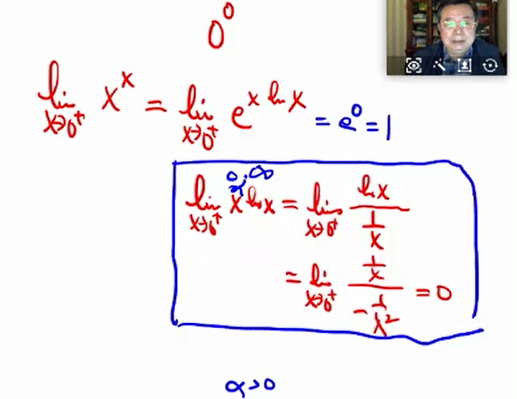 0⁰
lim x→0⁺ x^x = lim x→0⁺ e^(x ln x) = e⁰ = 1
0·∞
lim x→0⁺ x ln x = lim x→0⁺ (ln x)/(1/x)
= lim x→0⁺ (1/x)/(-1/x²) = 0
α>0